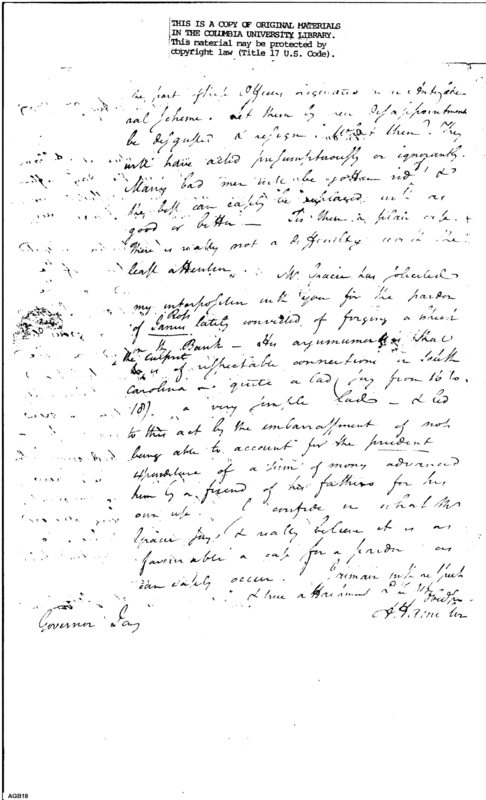 THIS IS A COPY OF ORIGINAL MATERIALS
IN THE COLUMBIA UNIVERSITY LIBRARY.
This material may be protected by
copyright law (Title 17 U.S. Code).
the part of the Officers originates in
scheme. Let them by disappointment
be disgusted & resign. What then? They
will have acted presumptuously or ignorantly.
Many bad men will be gotten rid of &
the best can easily be replaced with as
good or better — Tis then a plain case.
There is really not a difficulty worth the
least attention. Mr Gracie has solicited
my interposition with you for the pardon
of James Ross lately convicted of forging a check
on the Bank — His argument is that
the culprit is of respectable connections in South
Carolina — quite a lad (say from 16 to
18) a very simple lad — & led
to this act by the embarrassment of not
being able to account for the prudent
expenditure of a sum of money advanced
him by a friend of his father for his
own use. I confide in what Mr
Gracie says & really believe it is as
favourable a case for a pardon as
can easily occur. I remain with respect
& true attachment
Governor Jay
AGB18